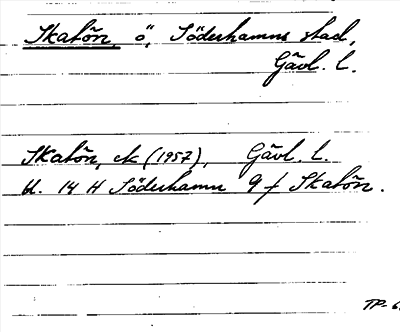 Skatön, ö, Söderhamns stad,
Gävl. l.
Skatön, ek (1957), Gävl. l.
bl. 14 H Söderhamn 9 f Skatön.
TP-6